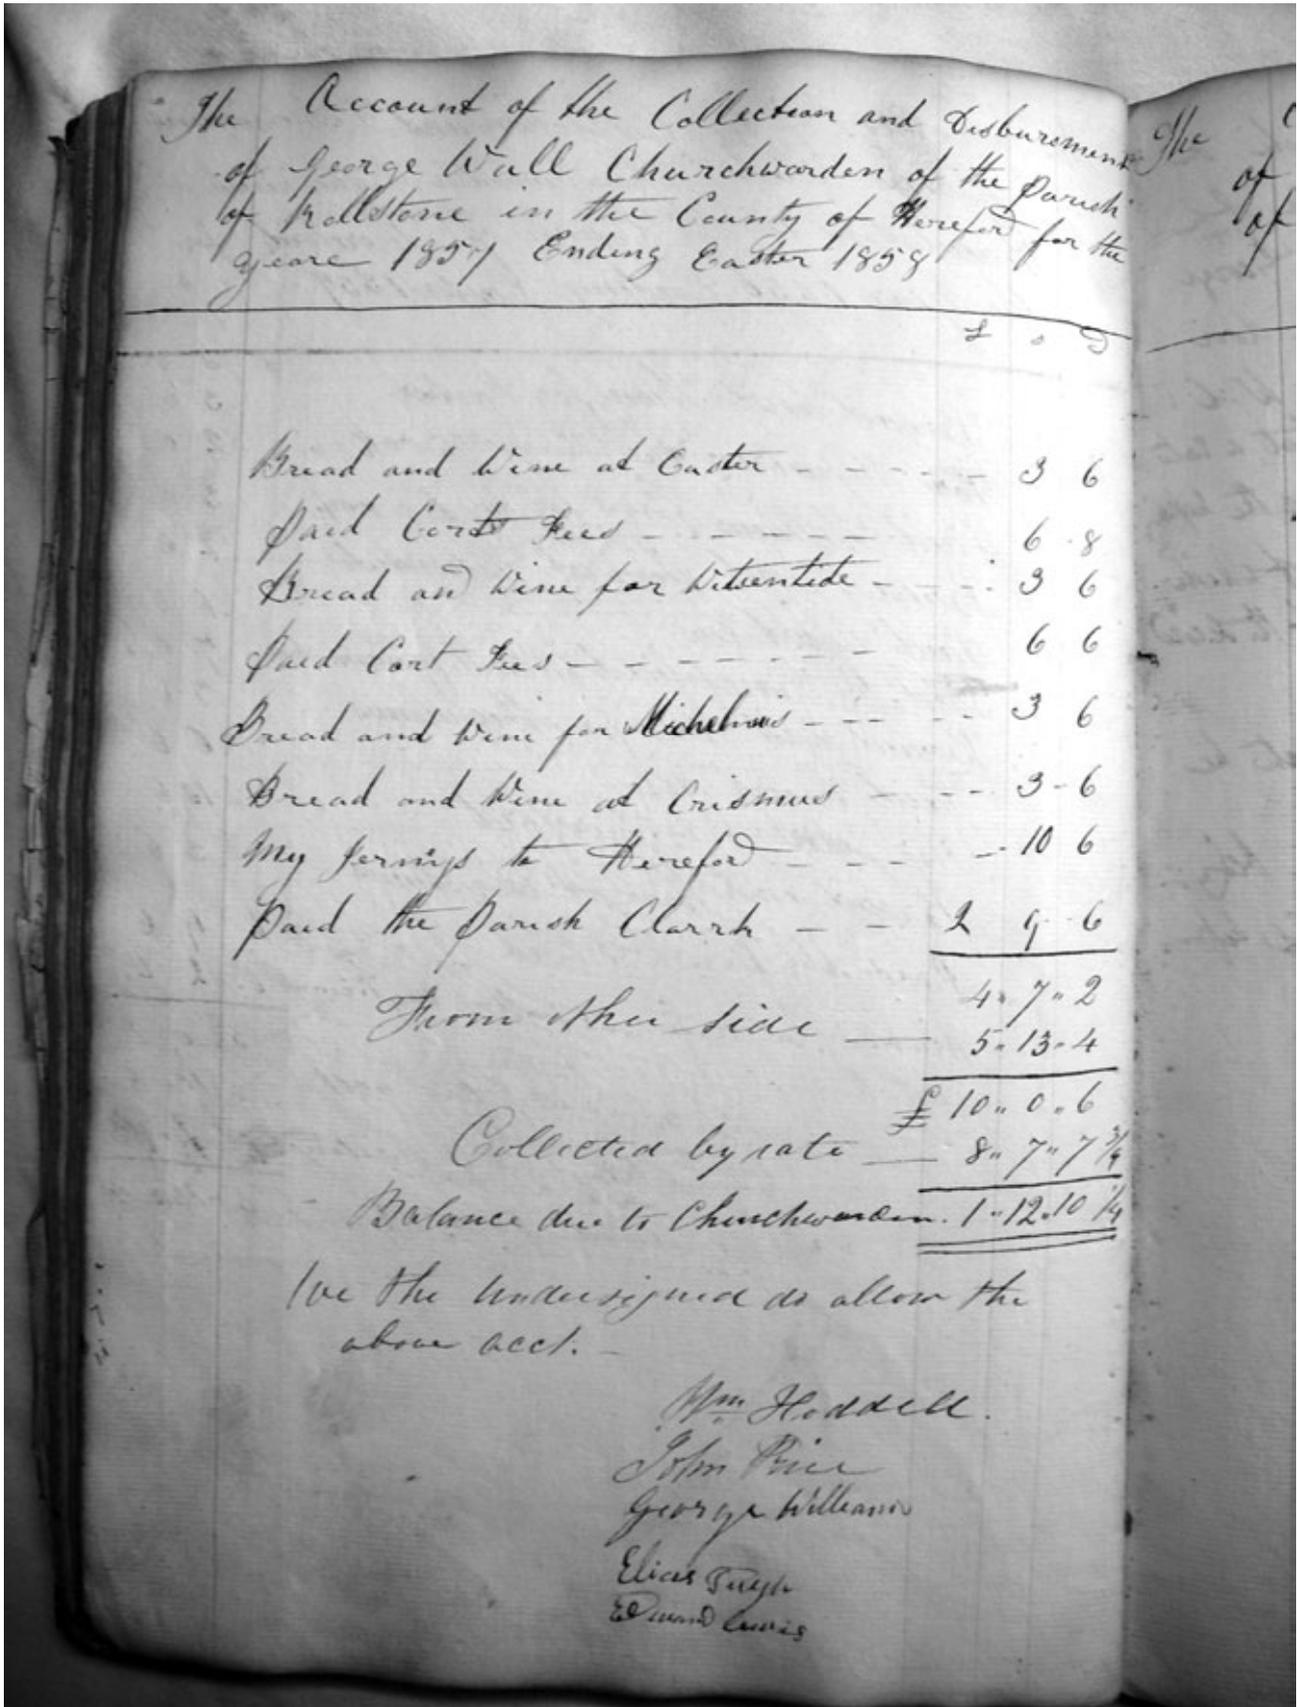 The Account of the Collection and Disbursment
of George Wall Churchwarden of the Parish
of Rollstone in the County of Hereford for the
yeare 1857 Ending Easter 1858
£ s D
Bread and Wine at Easter - - - - - - 3 6
Paid Corts Fees - - - - - - 6 - 8
Bread and Wine for Witsentide - - - - 3 6
Paid Cort Fees - - - - - - - - 6 6
Bread and Wine for Michelmis - - - - - 3 6
Bread and Wine at Crismus - - - 3 - 6
My Jernys to Hereford - - - - - 10 6
Paid the Parish Clarrk - - 2 9 - 6
4 " 7 " 2
From other side — 5 " 13 " 4
£ 10 " 0 " 6
Collected by rate — 8 " 7 " 7 3/4
Balance due to Churchwarden. 1 " 12 " 10 1/4
We the undersigned do allow the
above acct. -
Wm Hoddell.
John Price
George Williams
Elias Pugh
Edward Lewis
The
of
of